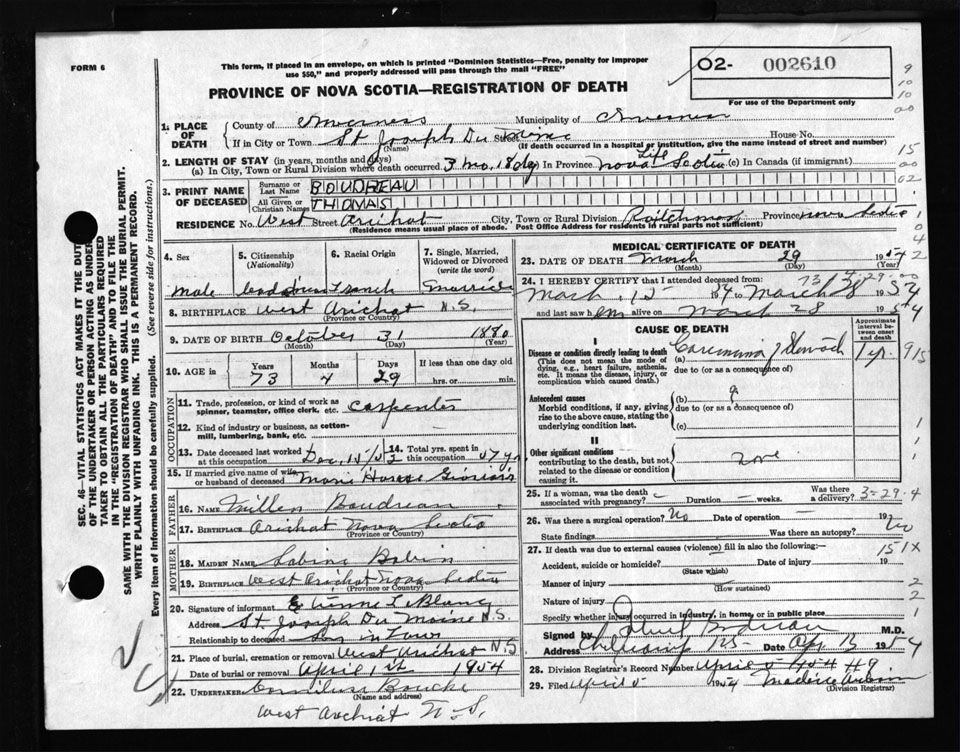 FORM 6
This form, if placed in an envelope, on which is printed "Dominion Statistics—Free, penalty for improper
use $50," and properly addressed will pass through the mail "FREE"
PROVINCE OF NOVA SCOTIA—REGISTRATION OF DEATH
02- 002610
For use of the Department only
1. PLACE OF DEATH
County of Inverness Municipality of Inverness
If in City or Town St Joseph Du Moine Street House No.
(Name) (If death occurred in a hospital or institution, give the name instead of street and number)
2. LENGTH OF STAY (in years, months and days)
(a) In City, Town or Rural Division where death occurred 3 mo. 18 dy (b) In Province Life Nova Scotia (c) In Canada (if immigrant)
3. PRINT NAME OF DECEASED
Surname or Last Name BOUDREAU
All Given or Christian Names THOMAS
RESIDENCE No. West Street Arichat City, Town or Rural Division Richmond Province Nova Scotia
(Residence means usual place of abode. Post Office Address for residents in rural parts not sufficient)
4. Sex Male
5. Citizenship (Nationality) Canadian
6. Racial Origin French
7. Single, Married, Widowed or Divorced (write the word) Married
8. BIRTHPLACE West Arichat N.S.
9. DATE OF BIRTH October 31 1880
(Month) (Day) (Year)
10. AGE in Years Months Days If less than one day old
73 4 29 hrs. or min.
OCCUPATION
11. Trade, profession, or kind of work as spinner, teamster, office clerk, etc. Carpenter
12. Kind of industry or business, as cotton-mill, lumbering, bank, etc.
13. Date deceased last worked at this occupation Dec. 15
14. Total yrs. spent in this occupation 57 yrs
15. If married give name of wife or husband of deceased
FATHER
16. NAME Boudreau
17. BIRTHPLACE Arichat Nova Scotia
(Province or Country)
MOTHER
18. MAIDEN NAME Sabine
19. BIRTHPLACE West Arichat Nova Scotia
(Province or Country)
20. Signature of informant LeBlanc
Address St. Joseph Du Moine N.S.
Relationship to deceased Son in law
21. Place of burial, cremation or removal West Arichat N.S
Date of burial or removal April 1st 1954
22. UNDERTAKER
(Name and address)
West Arichat N.S.
MEDICAL CERTIFICATE OF DEATH
23. DATE OF DEATH March 29 1954
(Month) (Day) (Year)
24. I HEREBY CERTIFY that I attended deceased from:
March 15 1954 to March 28 1954
and last saw him alive on March 28 1954
CAUSE OF DEATH
Approximate interval between onset and death
I
Disease or condition directly leading to death
(This does not mean the mode of dying, e.g., heart failure, asthenia, etc. It means the disease, injury, or complication which caused death.)
(a) Carcinoma of Stomach 1 yr.
due to (or as a consequence of)
Antecedent causes
Morbid conditions, if any, giving rise to the above cause, stating the underlying condition last.
(b)
due to (or as a consequence of)
(c)
II
Other significant conditions
contributing to the death, but not related to the disease or condition causing it.
None
25. If a woman, was the death associated with pregnancy? – Duration – weeks. Was there a delivery? 3-29-4
26. Was there a surgical operation? No Date of operation – 19
State findings Was there an autopsy? No
27. If death was due to external causes (violence) fill in also the following:—
151X
Accident, suicide or homicide? Date of injury 19
(State which)
Manner of injury
(How sustained)
Nature of injury
Specify whether injury occurred in industry, in home, or in public place
Signed by M.D.
Address Cheticamp NS Date 1954
28. Division Registrar's Record Number April 5 1954 #9
29. Filed April 5 1954
(Division Registrar)
SEC. 46—VITAL STATISTICS ACT MAKES IT THE DUTY
OF THE UNDERTAKER OR PERSON ACTING AS UNDER-
TAKER TO OBTAIN ALL THE PARTICULARS REQUIRED
IN THE "REGISTRATION OF DEATH" AND TO FILE THE
SAME WITH THE DIVISION REGISTRAR WHO SHALL ISSUE THE BURIAL PERMIT.
WRITE PLAINLY WITH UNFADING INK. THIS IS A PERMANENT RECORD.
Every item of information should be carefully supplied. (See reverse side for instructions.)